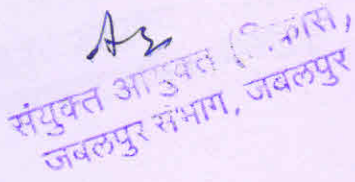 संयुक्त आयुक्त (विकास),
जबलपुर संभाग, जबलपुर